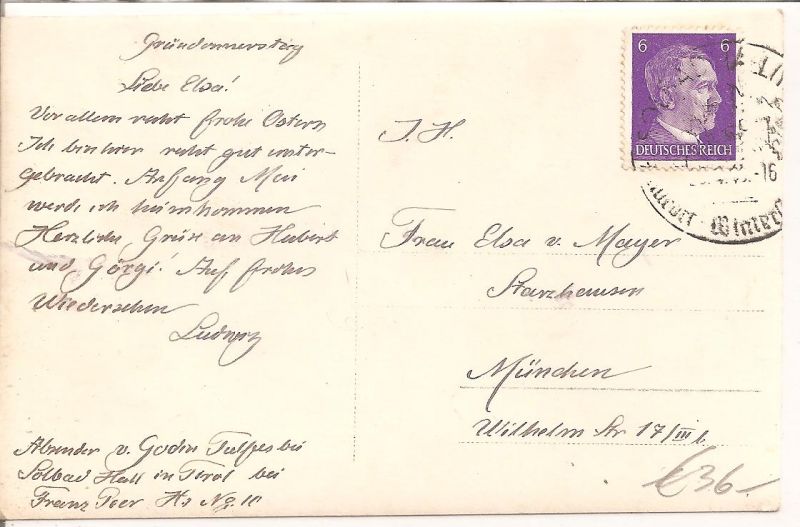 Gründonnerstag
Liebe Elsa!
Vor allem recht frohe Ostern
Ich bin hier recht gut unter-
gebracht. Anfang Mai
werde ich heimkommen
Herzliche Grüse an Hubert
und Görgi! Auf frohes
Wiedersehen
Ludwig
Absender v. Godin Tulfes bei
Solbad Hall in Tirol bei
Franz Peer Hs Nr. 10
6 6
DEUTSCHES REICH
16
I. H.
Frau Elsa v. Mayer
Starzhausen
München
Wilhelm Str 17/III l.
€36-